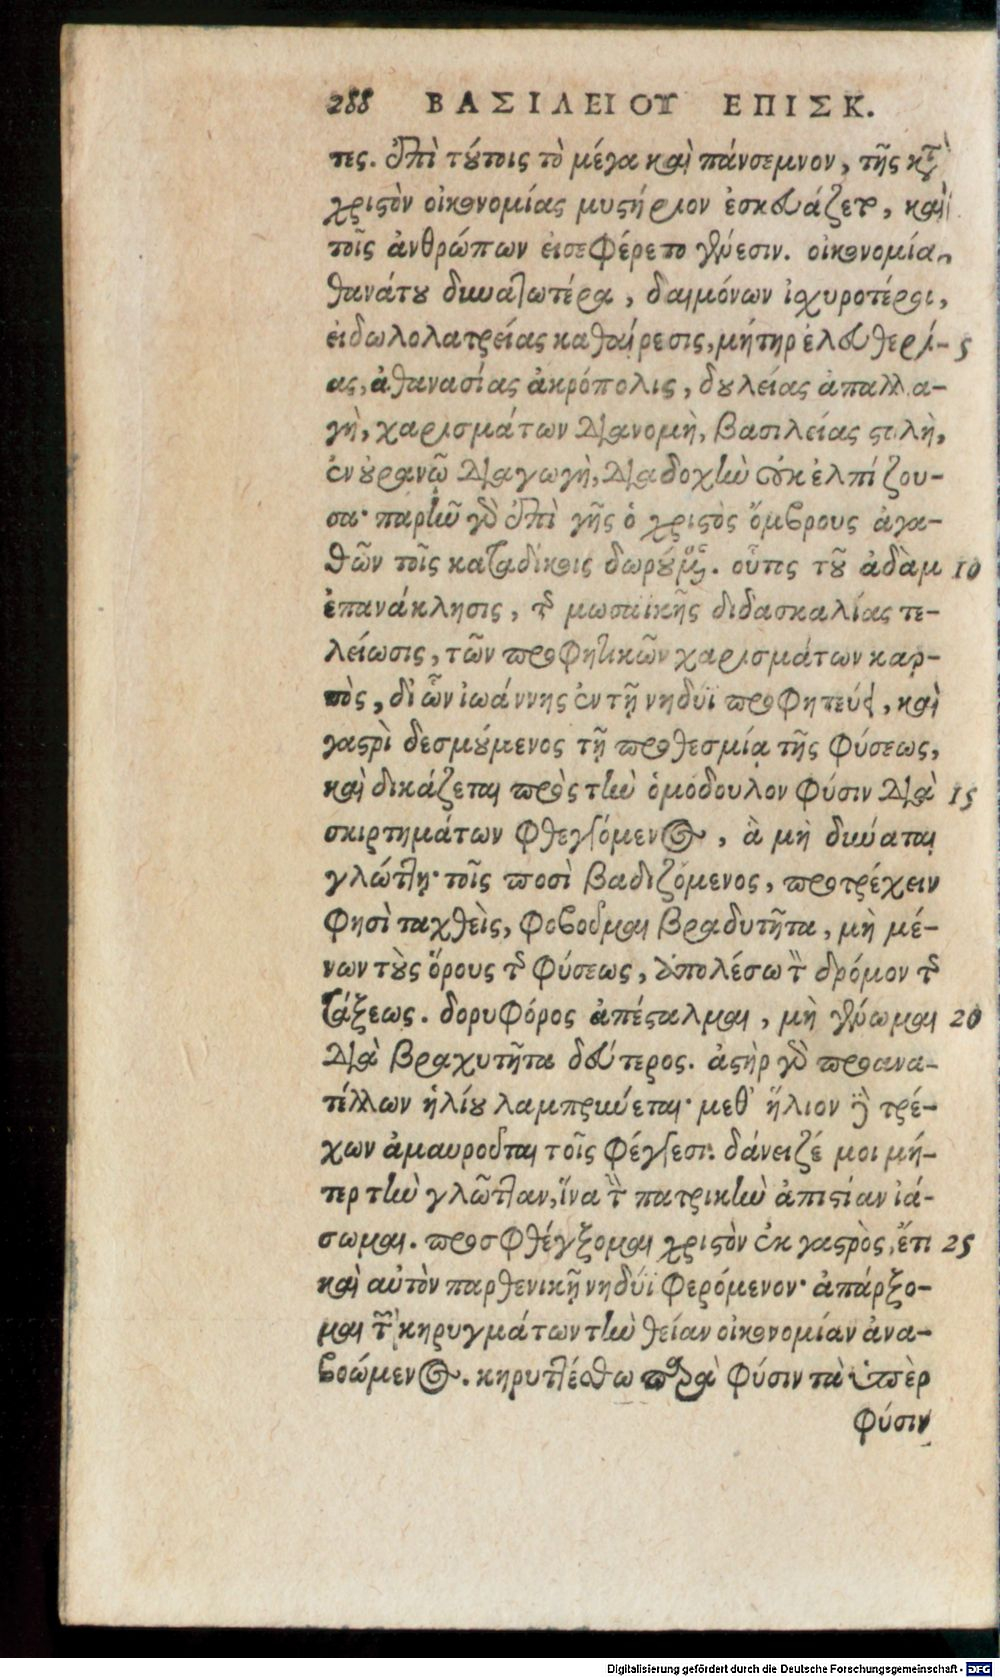 288 ΒΑΣΙΛΕΙΟΥ ΕΠΙΣΚ.
τες. ἐπὶ τούτοις τὸ μέγα καὶ πάνσεμνον, τῆς κτ̀
χριστὸν οἰκονομίας μυστήριον ἐσκευάζετο, καὶ
τοῖς ἀνθρώπων εἰσεφέρετο γένεσιν. οἰκονομία,
θανάτου δυνατωτέρα, δαιμόνων ἰσχυροτέρα,
εἰδωλολατρείας καθαίρεσις, μήτηρ ἐλευθερί- 5
ας, ἀθανασίας ἀκρόπολις, δουλείας ἀπαλλα-
γὴ, χαρισμάτων διανομὴ, βασιλείας στολὴ,
ἐν οὐρανῷ διαγωγὴ, διαδοχὴν οὐκ ἐλπίζου-
σα· παρῆν γὸ ἐπὶ γῆς ὁ χριστὸς ὄμβρους ἀγα-
θῶν τοῖς καταδίκοις δωρούμενος. οὗτος τοῦ ἀδὰμ 10
ἐπανάκλησις, τῆς μωσαϊκῆς διδασκαλίας τε-
λείωσις, τῶν προφητικῶν χαρισμάτων καρ-
πὸς, δι' ὧν ἰωάννης ἐν τῇ νηδύϊ προφητεύει, καὶ
γαστρὶ δεσμούμενος τῇ προθεσμίᾳ τῆς φύσεως,
καὶ δικάζεται πρὸς τὴν ὁμόδουλον φύσιν διὰ 15
σκιρτημάτων φθεγγόμενος, ἃ μὴ δύναται
γλώττῃ· τοῖς ποσὶ βαδιζόμενος, προτρέχειν
φησὶ ταχθεὶς, φοβοῦμαι βραδυτῆτα, μὴ μέ-
νων τοὺς ὅρους τῆς φύσεως, ἀπολέσω τὸν δρόμον τῆς
τάξεως. δορυφόρος ἀπέσταλμαι, μὴ γένωμαι 20
διὰ βραχυτῆτα δεύτερος. ἀστὴρ γὸ προανα-
τέλλων ἡλίου λαμπρύνεται· μεθ' ἥλιον δὲ τρέ-
χων ἀμαυροῦται τοῖς φέγγεσι. δάνειζέ μοι μή-
τερ τὴν γλῶτταν, ἵνα τὴν πατρικὴν ἀπιστίαν ἰά-
σωμαι. προσφθέγξομαι χριστὸν ἐκ γαστρὸς, ἔτι 25
καὶ αὐτὸν παρθενικῇ νηδύϊ φερόμενον· ἀπάρξο-
μαι τῶν κηρυγμάτων τὴν θείαν οἰκονομίαν ἀνα-
βοώμενος. κηρυττέσθω παρὰ φύσιν τὰ ὑπὲρ
φύσιν
Digitalisierung gefördert durch die Deutsche Forschungsgemeinschaft - DFG